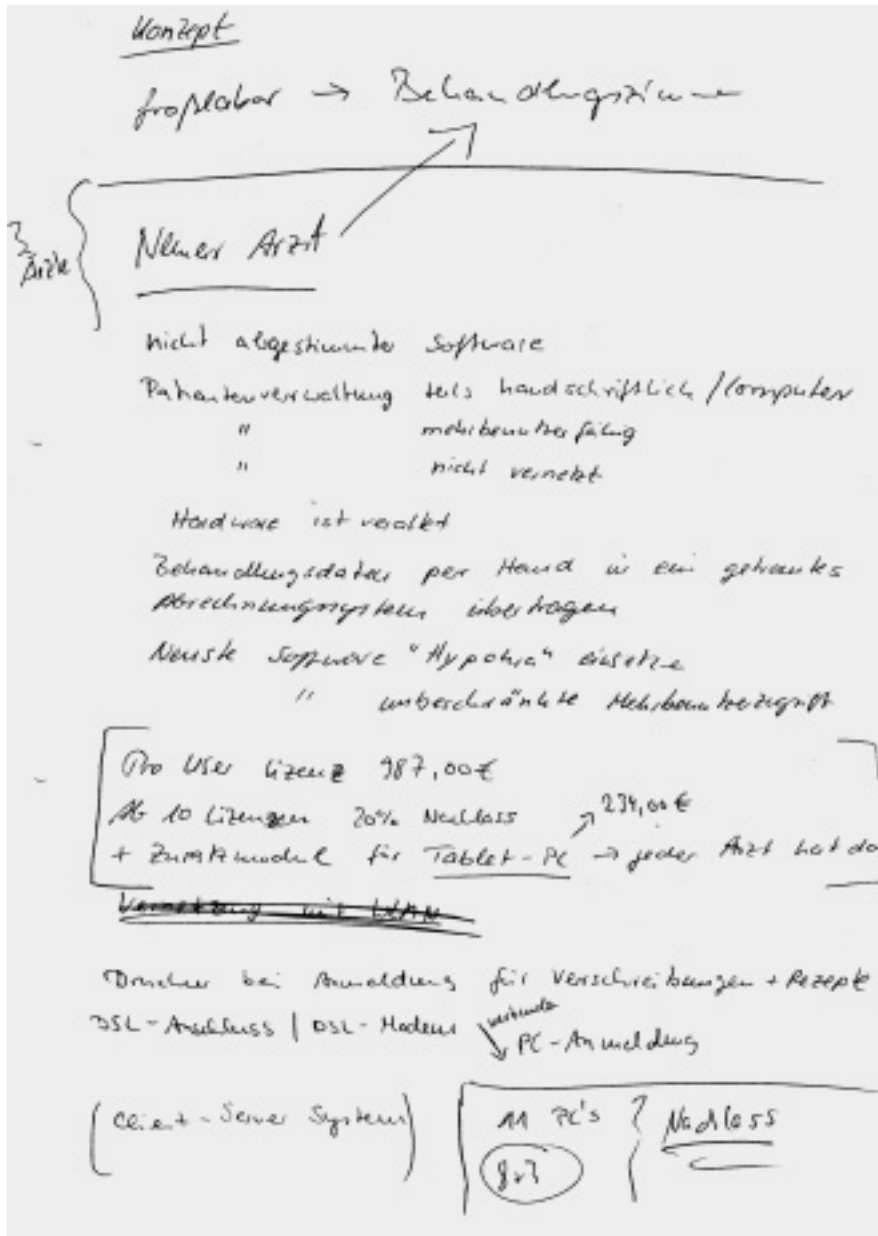 Konzept
Großlabor → Behandlungszimmer
3 Ärzte
Neuer Arzt
nicht abgestimmter Software
Patientenverwaltung teils handschriftlich / Computer
" mehrbenutzerfähig
" nicht vernetzt
Hardware ist veraltet
Behandlungsdaten per Hand in ein getrenntes
Abrechnungssystem übertragen
Neuste Software "Hypokra" einsetzen
" unbeschränkte Mehrbenutzerzugriff
Pro User Lizenz 987,00€
Ab 10 Lizenzen 20% Nachlass
234,00€
+ Zusatzmodul für Tablet-PC → jeder Arzt hat da
Vernetzung mit WAN
Drucker bei Anmeldung für Verschreibungen + Rezepte
DSL-Anschluss | DSL-Modem verbunden
PC-Anmeldung
(Client-Server System)
11 PC's } Nachlass
8+3